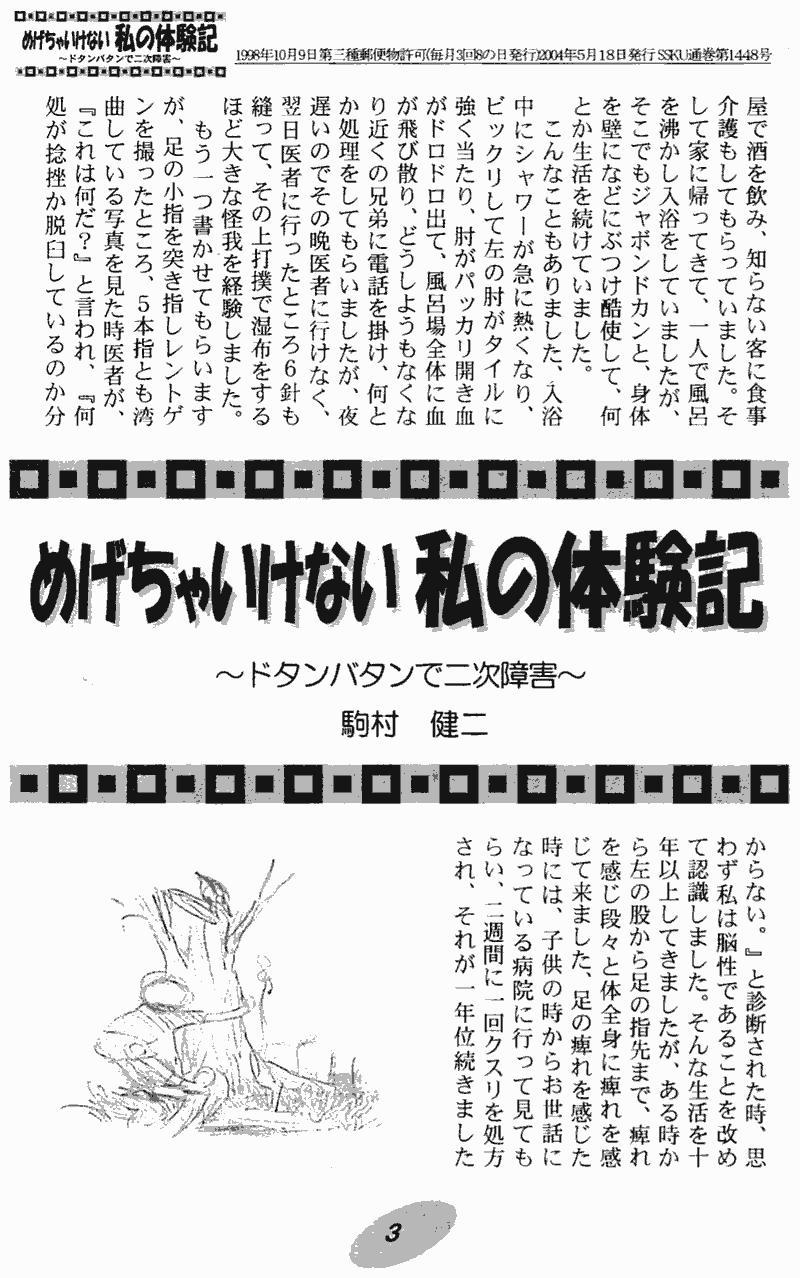 めげちゃいけない 私の体験記
～ドタンバタンで二次障害～
1998年10月9日第三種郵便物許可(毎月3回8の日発行)2004年5月18日発行 SSKU通巻第1448号
屋で酒を飲み、知らない客に食事
介護もしてもらっていました。そ
して家に帰ってきて、一人で風呂
を沸かし入浴をしていましたが、
そこでもジャボンドカンと、身体
を壁になどにぶつけ酷使して、何
とか生活を続けていました。
こんなこともありました、入浴
中にシャワーが急に熱くなり、
ビックリして左の肘がタイルに
強く当たり、肘がパッカリ開き血
がドロドロ出て、風呂場全体に血
が飛び散り、どうしようもなくな
り近くの兄弟に電話を掛け、何と
か処理をしてもらいましたが、夜
遅いのでその晩医者に行けなく、
翌日医者に行ったところ6針も
縫って、その上打撲で湿布をする
ほど大きな怪我を経験しました。
もう一つ書かせてもらいます
が、足の小指を突き指しレントゲ
ンを撮ったところ、5本指とも湾
曲している写真を見た時医者が、
『これは何だ？』と言われ、『何
処が捻挫か脱臼しているのか分
めげちゃいけない 私の体験記
～ドタンバタンで二次障害～
駒村 健二
からない。』と診断された時、思
わず私は脳性であることを改め
て認識しました。そんな生活を十
年以上してきましたが、ある時か
ら左の股から足の指先まで、痺れ
を感じ段々と体全身に痺れを感
じて来ました、足の痺れを感じた
時には、子供の時からお世話に
なっている病院に行って見ても
らい、二週間に一回クスリを処方
され、それが一年位続きました
3